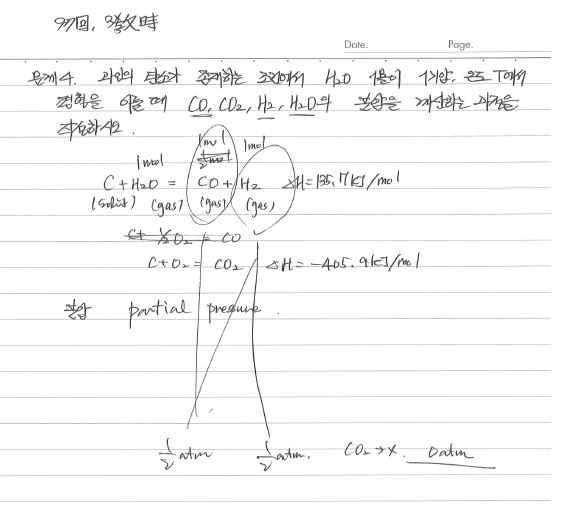 97回, 3教時
Date. Page.
문제4. 과잉의 탄소가 존재하는 조건에서 H2O 1몰이 1기압, 온도 T에서
평형을 이룰 때 CO, CO2, H2, H2O의 분압을 계산하는 과정을
작성하시오.
1mol
1mol 1/2mol 1mol
C+H2O = CO+H2 ΔH=135.7kJ/mol
(solid) (gas) (gas) (gas)
C+ 1/2O2 = CO
C+O2= CO2 ΔH=-405.9kJ/mol
분압 partial pressure.
1/2 atm 1/2 atm. CO2→x. 0atm